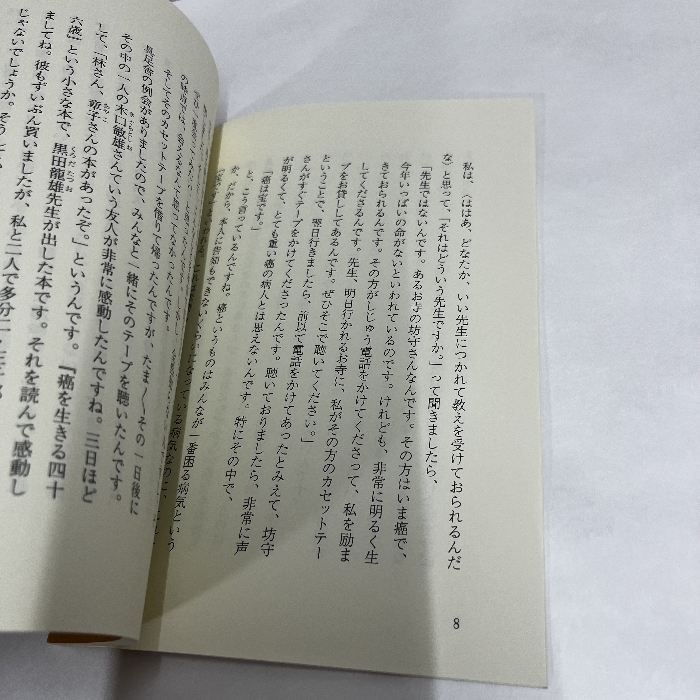 私は、〈ははあ、どなたか、いい先生につかれて教えを受けておられるんだ
な〉と思って、「それはどういう先生ですか。」って聞きましたら、
「先生ではないんです。あるお寺の坊守さんなんです。その方はいま癌で、
今年いっぱいの命がないといわれているのです。けれども、非常に明るく生
きておられるんです。その方がしじゅう電話をかけてくださって、私を励ま
してくださるんです。先生、明日行かれるお寺に、私がその方のカセットテー
プをお貸ししてあるんです。ぜひそこで聴いてください。」
ということで、翌日行きましたら、前以て電話をかけてあったとみえて、坊守
さんがすぐテープをかけてくださったんです。聴いておりましたら、非常に声
が明るくて、とても重い癌の病人とは思えないんです。特にその中で、
「癌は宝です。」
と、こう言っているんですね。癌というものはみんなが一番困る病気という
か、だから、本人に告知もできないくらいになっている病気なのに、
8
そしてそのカセットテープを借りて帰ったんですが、たまたまその一日後に
具足舎の例会がありましたので、みんなと一緒にそのテープを聴いたんです。
その中の一人の木口敏雄さんていう友人が非常に感動したんですね。三日ほど
して、「林さん、章子さんの本があったぞ。」というんです。『癌を生きる四十
六歳』という小さな本で、黒田龍雄先生が出した本です。それを読んで感動し
ましてね。彼もずいぶん買いましたが、私と二人で多分
じゃないでしょうか。